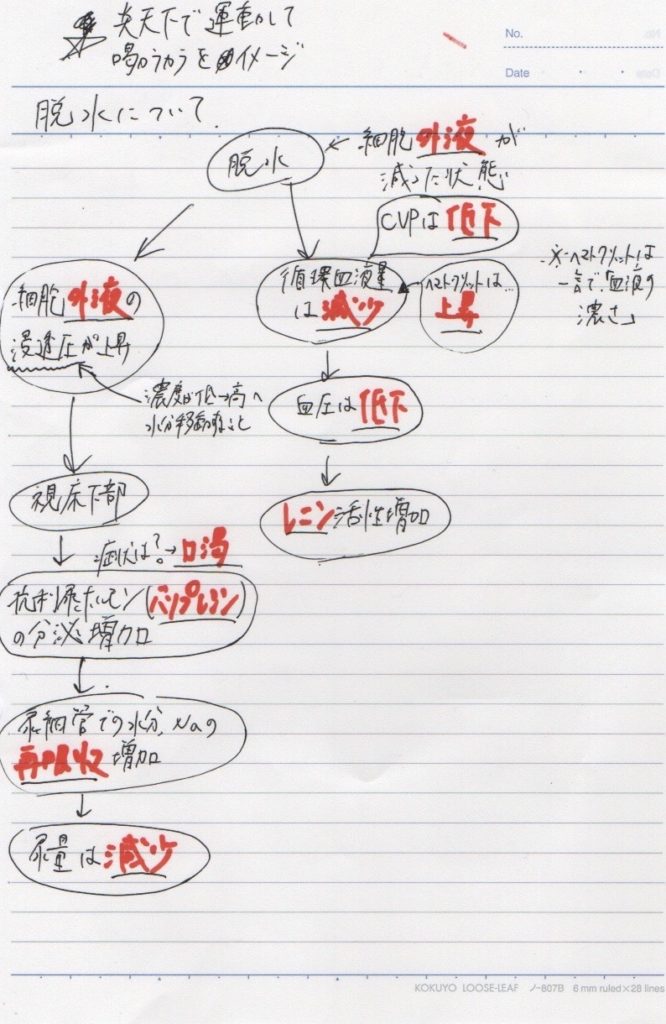 炎天下で運動して
喉カラカラをイメージ
No.
Date
脱水について
脱水
細胞外液が
減った状態
CVPは低下
循環血液量
は減少
ヘマトクリットは…
上昇
※ヘマトクリットは
一言で「血液の
濃さ」
細胞外液の
浸透圧が上昇
濃度が低→高へ
水分移動すること
血圧は低下
視床下部
レニン活性増加
症状は?→口渇
抗利尿ホルモン(バソプレシン)
の分泌増加
尿細管での水分、Naの
再吸収増加
尿量は減少
KOKUYO LOOSE-LEAF ノ-807B 6 mm ruled×28 lines